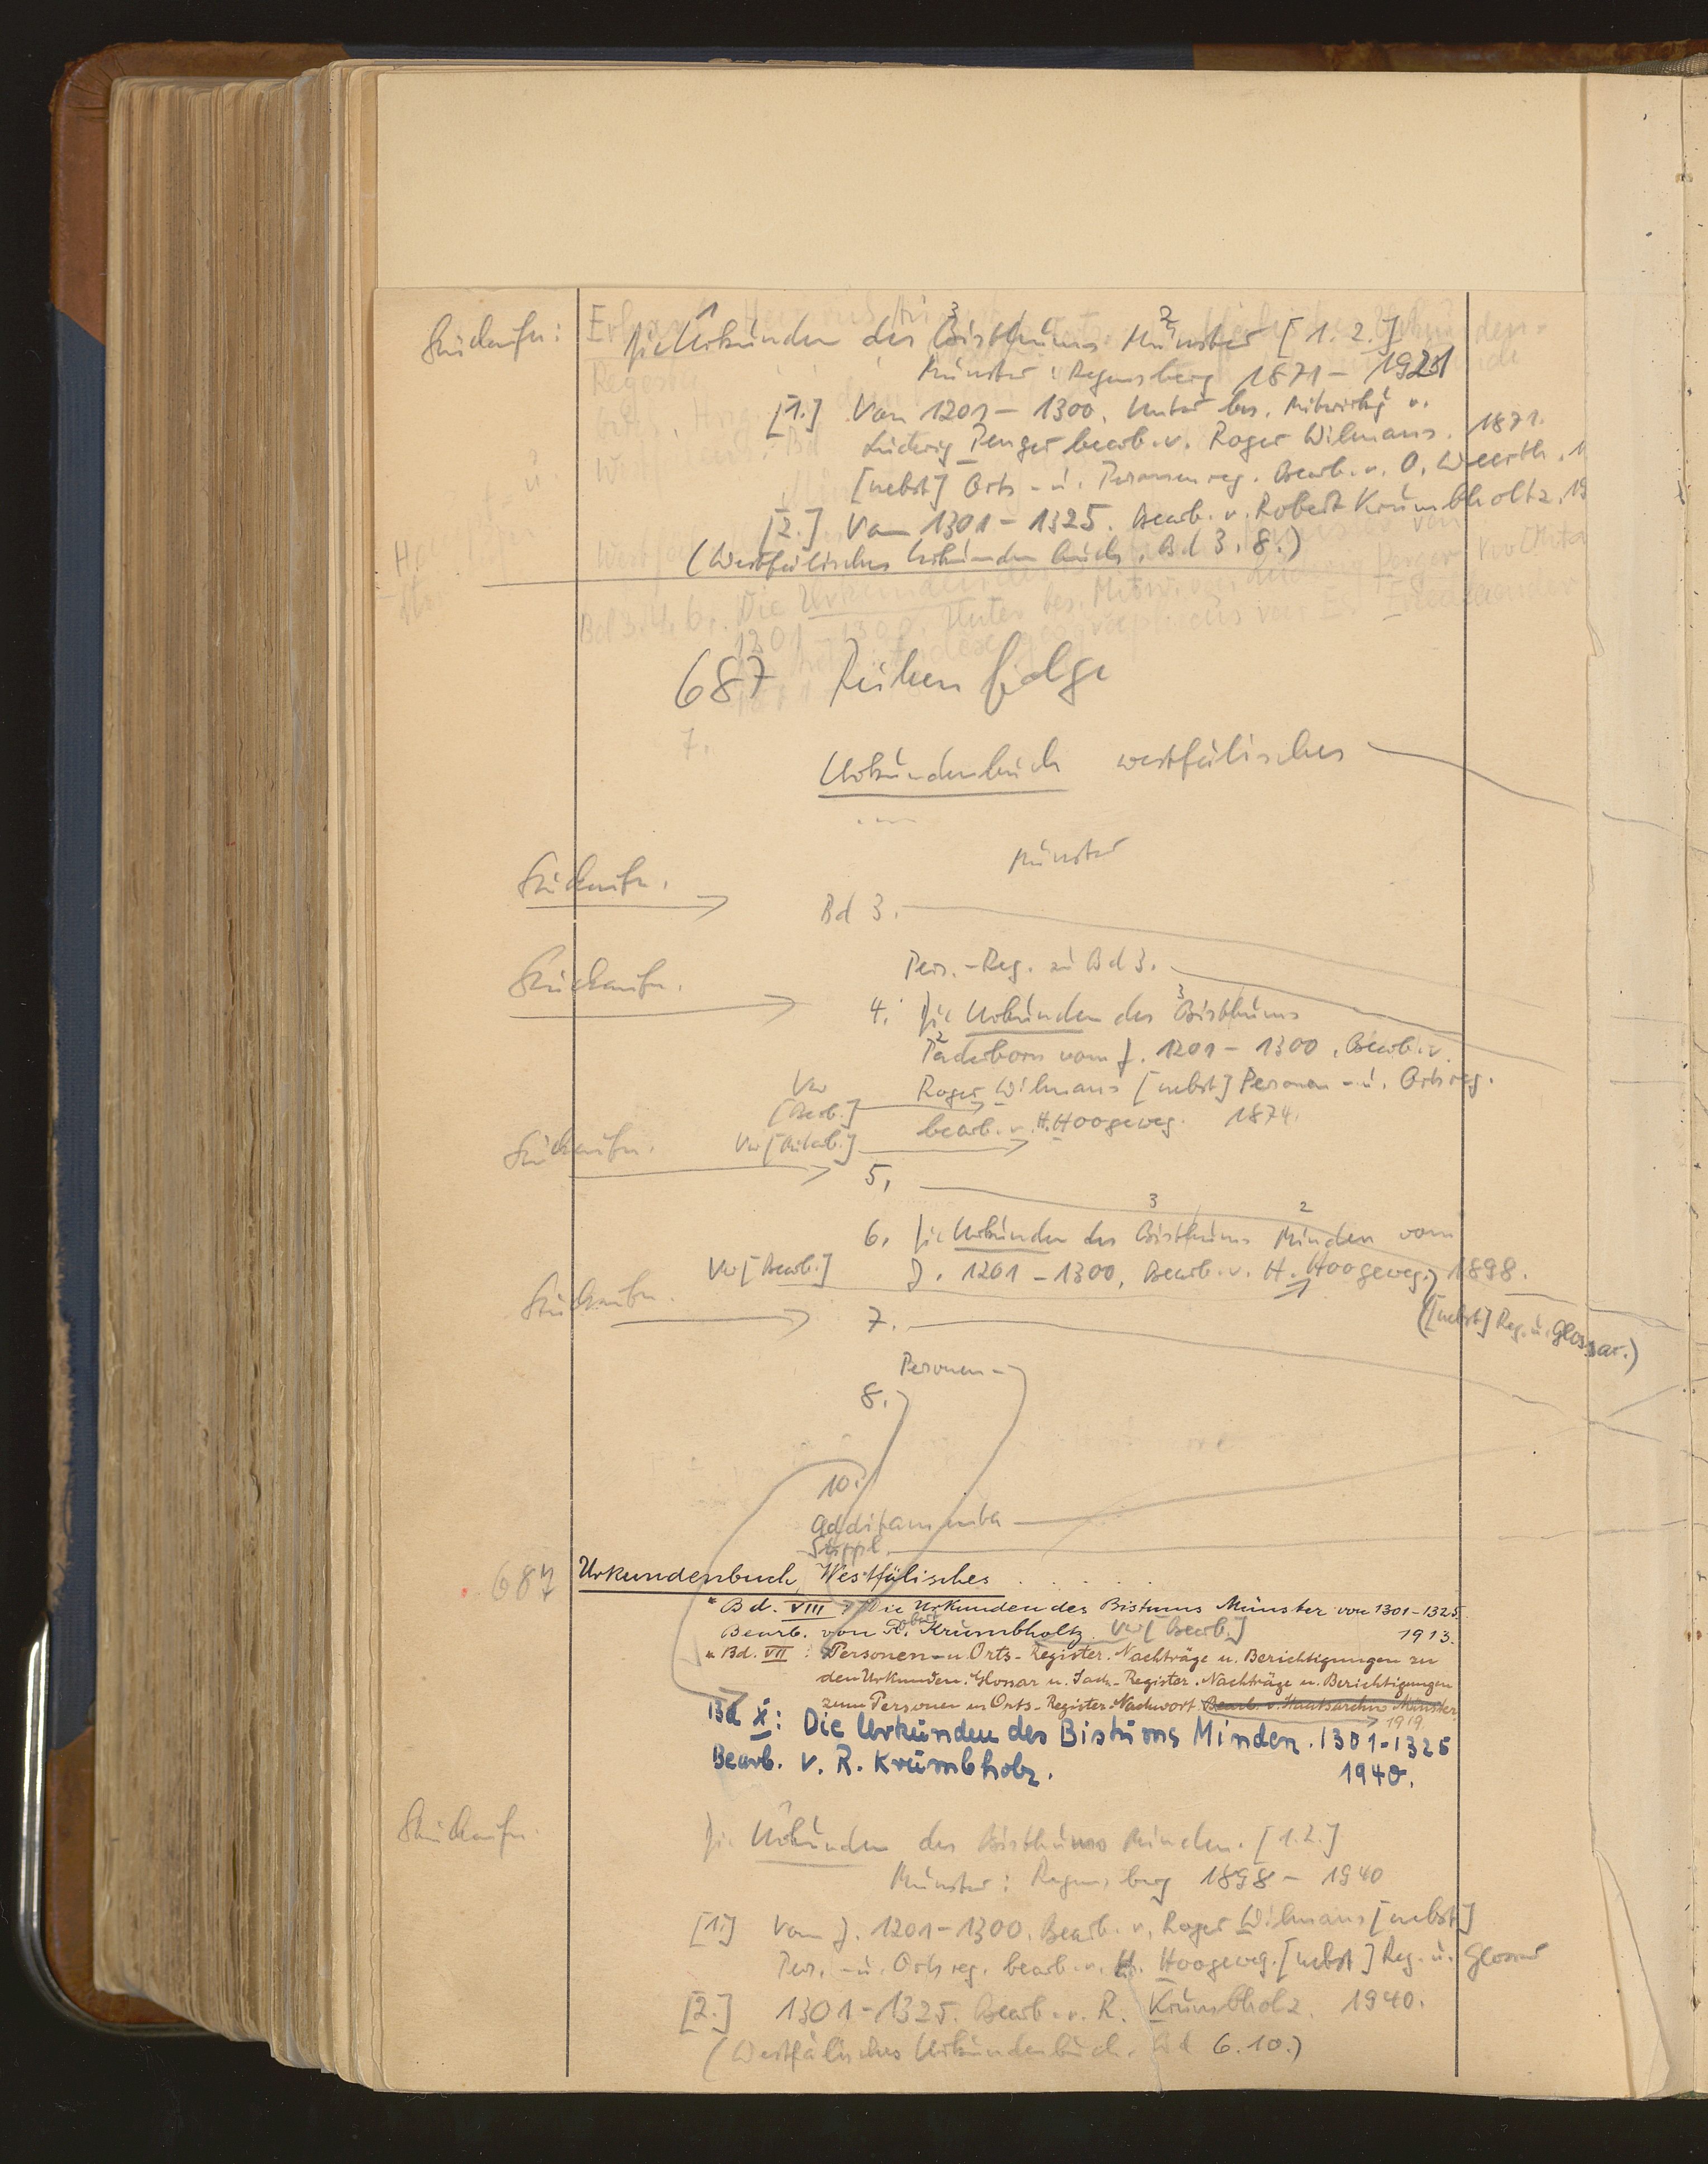 Stückaufn:
Die Urkunden des Bisthums Münster [1. 2.]
Münster: Regensberg 1871 - 1921
[1.] Von 1201 - 1300. Unter bes. Mitwirkg v.
Ludwig Perger bearb. v. Roger Wilmans. 1871.
[nebst] Orts- u. Personenreg. Bearb. v. O. Weerth. 1
[2.] Von 1301 - 1325. Bearb. v. Robert Krumbholtz. 19
(Westfälisches Urkundenbuch. Bd 3. 8.)
Bd 3. 4. 6. Die Urkunden des
1201 - 1300. Unter bes. Mitw. von Ludwig Perger
687 Reihenfolge
7.
Urkundenbuch westfälisches
Münster
Stückaufn.
Bd 3.
Pers.-Reg. zu Bd 3.
Stückaufn.
4. Die Urkunden des Bisthums
Paderborn vom J. 1201 - 1300. Bearb. v.
Vw [Bearb.] Roger Wilmans [nebst] Personen- u. Ortsreg.
bearb. v. H. Hoogeweg. 1874.
Stückaufn. Vw [Mitarb.]
5.
6. Die Urkunden des Bisthums Minden vom
Vw [Bearb.] J. 1201 - 1300. Bearb. v. H. Hoogeweg. 1898.
([nebst] Reg. u. Glossar.)
Stückaufn.
7.
Personen-
8.
10.
Additamenta
Suppl.
687 Urkundenbuch, Westfälisches . . . . .
" Bd. VIII: Die Urkunden des Bistums Münster von 1301-1325.
Bearb. von Robert Krumbholtz. Vw [Bearb.] 1913.
" Bd. VII: Personen- u. Orts-Register. Nachträge u. Berichtigungen zu
den Urkunden. Glossar u. Sach-Register. Nachträge u. Berichtigungen
zum Personen u Orts-Register. Nachwort. Bearb. v. Staatsarchiv Münster.
1919.
Bd X: Die Urkunden des Bistums Minden. 1301-1325
Bearb. v. R. Krumbholz. 1940.
Stückaufn. Die Urkunden des Bisthums Minden. [1.2.]
Münster: Regensberg 1898 - 1940
[1.] Vom J. 1201-1300. Bearb. v. Roger Wilmans [nebst]
Pers.- u. Ortsreg. bearb. v. H. Hoogeweg. [nebst] Reg. u. Glossar
[2.] 1301-1325. Bearb. v. R. Krumbholz. 1940.
(Westfälisches Urkundenbuch. Bd 6. 10.)